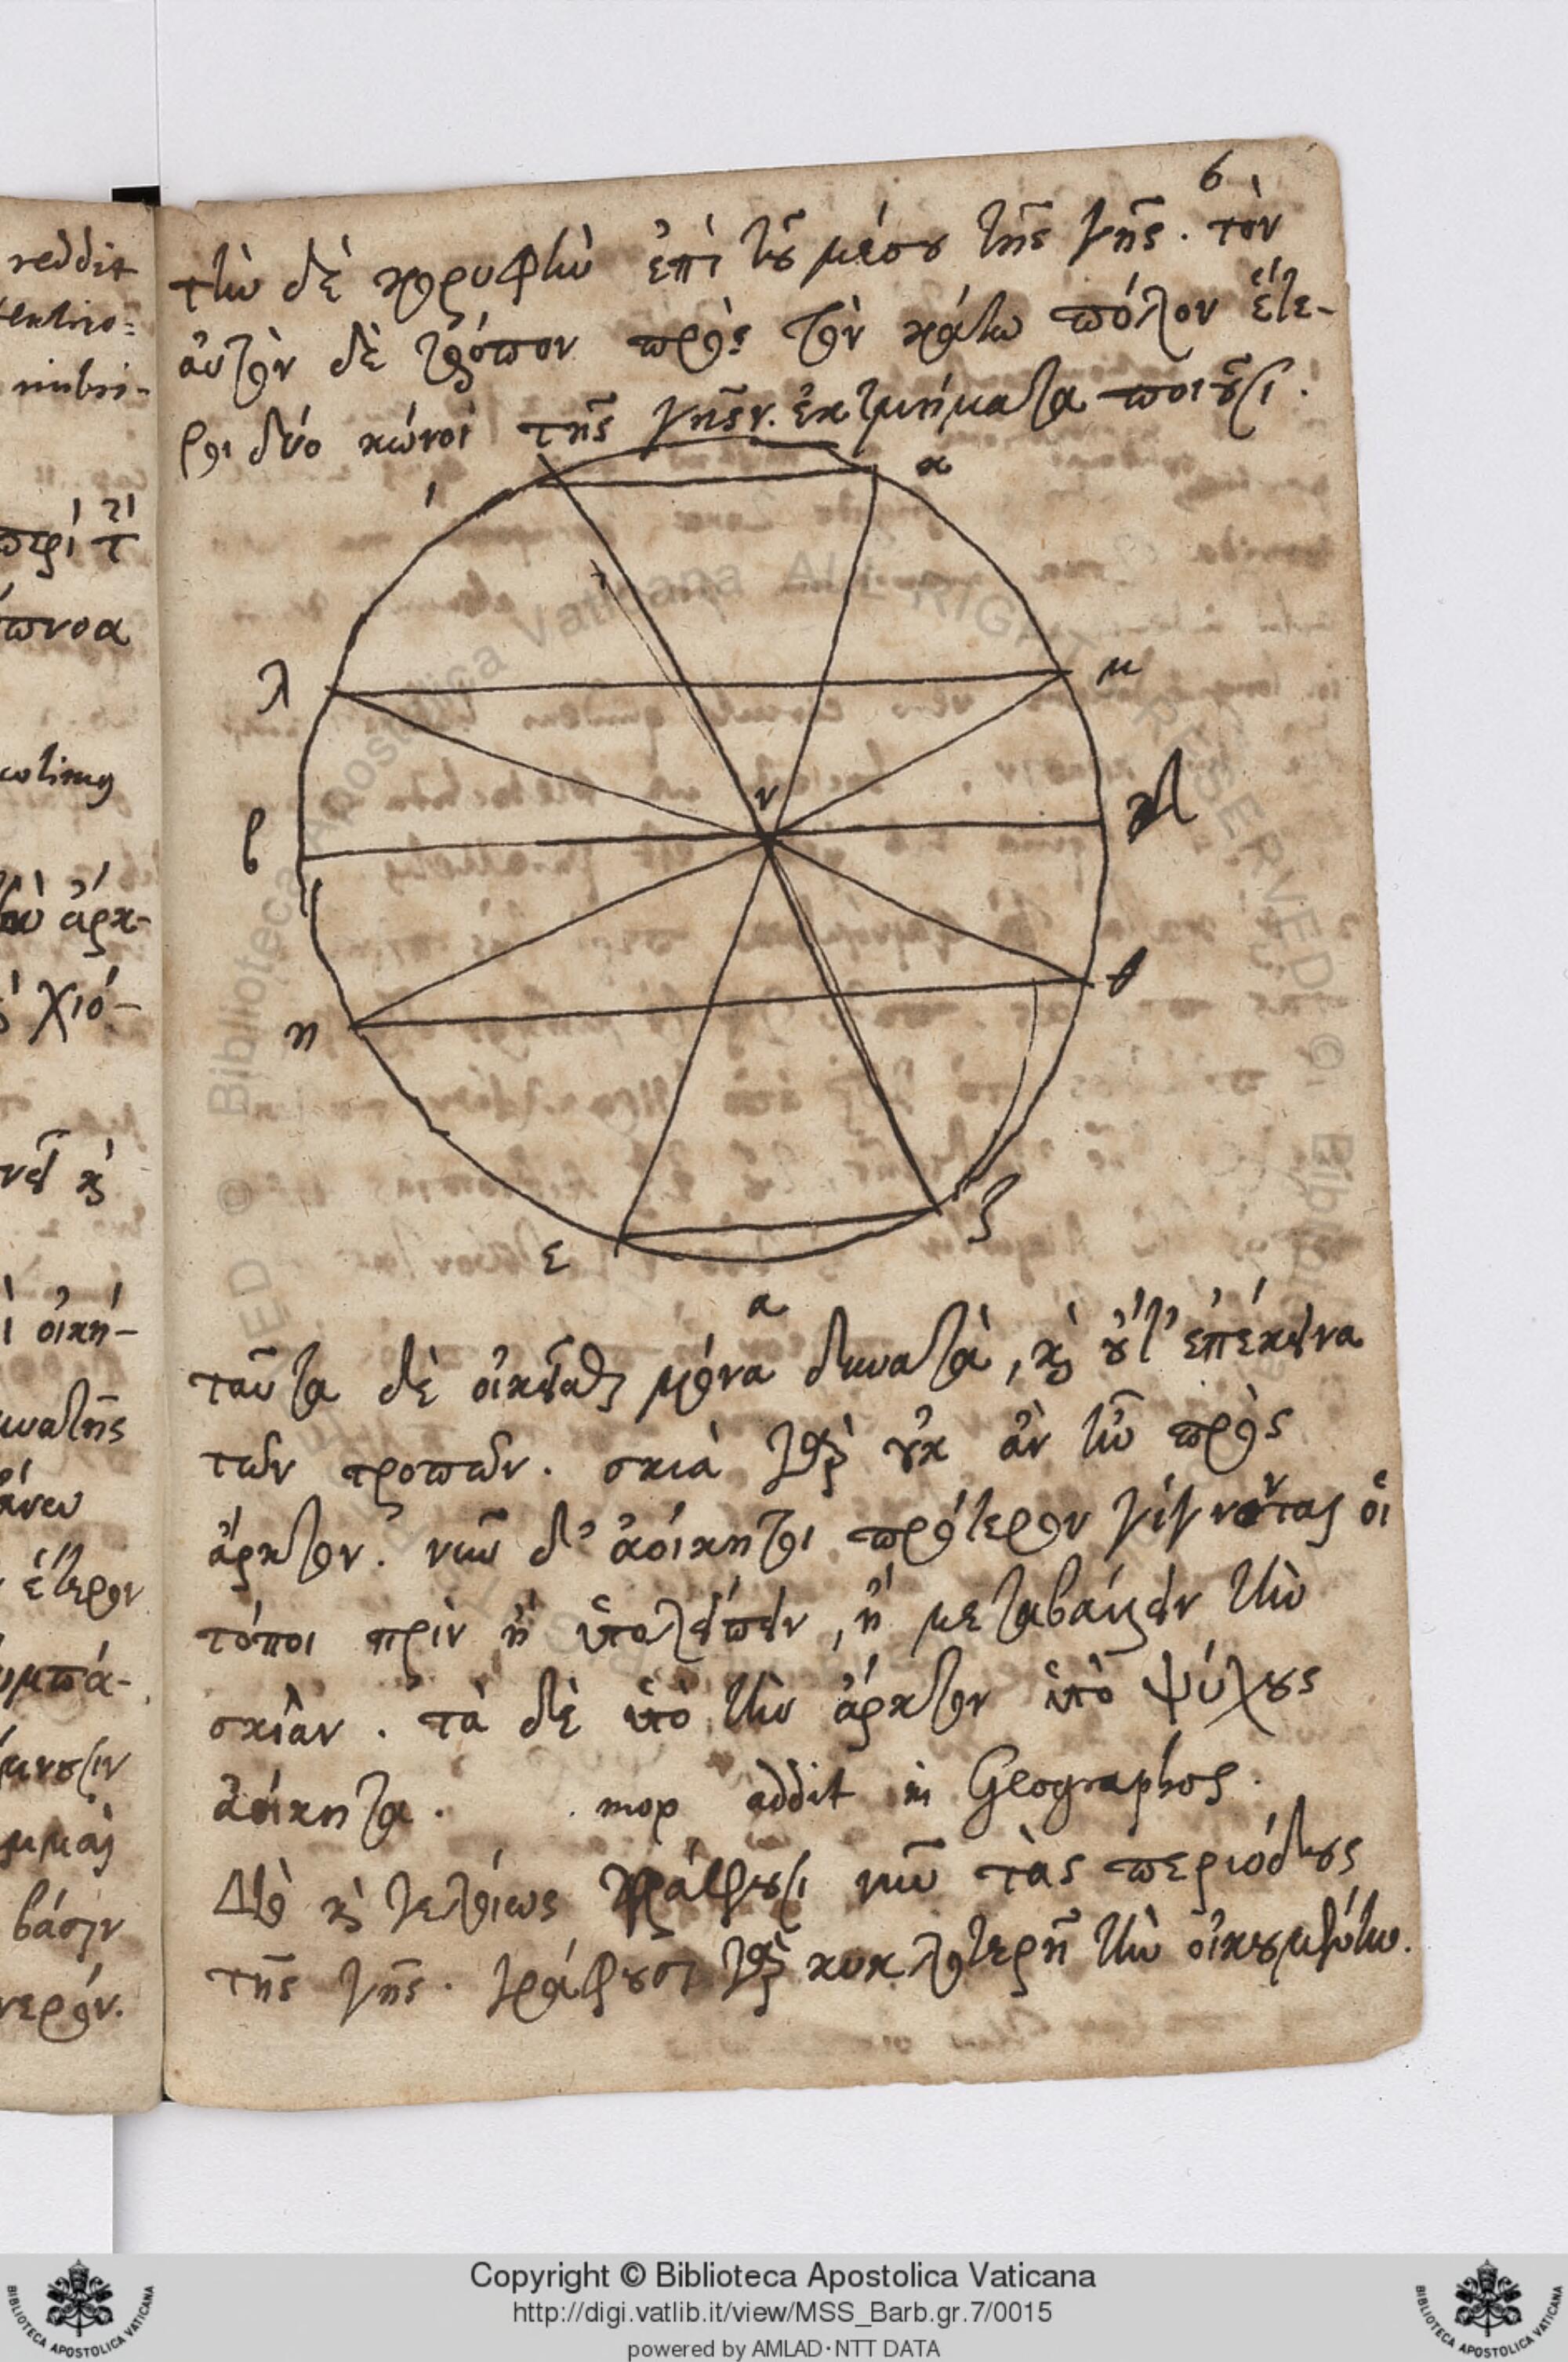 reddit
τὴν δὲ κορυφὴν ἐπὶ τοῦ μέσου τῆς γῆς. τὸν
αὐτὸν δὲ τρόπον πρὸς τὸν κάτω πόλον ἕτε-
ροι δύο κώνοι τῆς γῆς. ἐκτμήματα ποιοῦσι.
6
κ
ι
λ
μ
ν
β
η
θ
ε
ζ
α
ταῦτα δὲ οἰκεῖσθαι μόνα δυνατὰ, καὶ οὔτ' ἐπέκεινα
τῶν τροπῶν. σκιὰ γὰρ οὐκ ἂν ἦν πρὸς
ἄρκτον. νῦν δ' ἀοίκητοι πρότερον γίγνονται οἱ
τόποι πρὶν ἢ ὑπολείπειν, ἢ μεταβάλλειν τὴν
σκιὰν. τὰ δὲ ὑπὸ τὴν ἄρκτον ὑπὸ ψύχους
ἀοίκητα. mox addit in Geographos.
Διὸ καὶ γελοίως γράφουσι νῦν τὰς περιόδους
τῆς γῆς. γράφουσι γὰρ κυκλοτερῆ τὴν οἰκουμένην.
colimus
χιό-
οἰκη-
ἕτερον
βάσιν
Copyright © Biblioteca Apostolica Vaticana
http://digi.vatlib.it/view/MSS_Barb.gr.7/0015
powered by AMLAD·NTT DATA
BIBLIOTECA APOSTOLICA VATICANA
BIBLIOTECA APOSTOLICA VATICANA